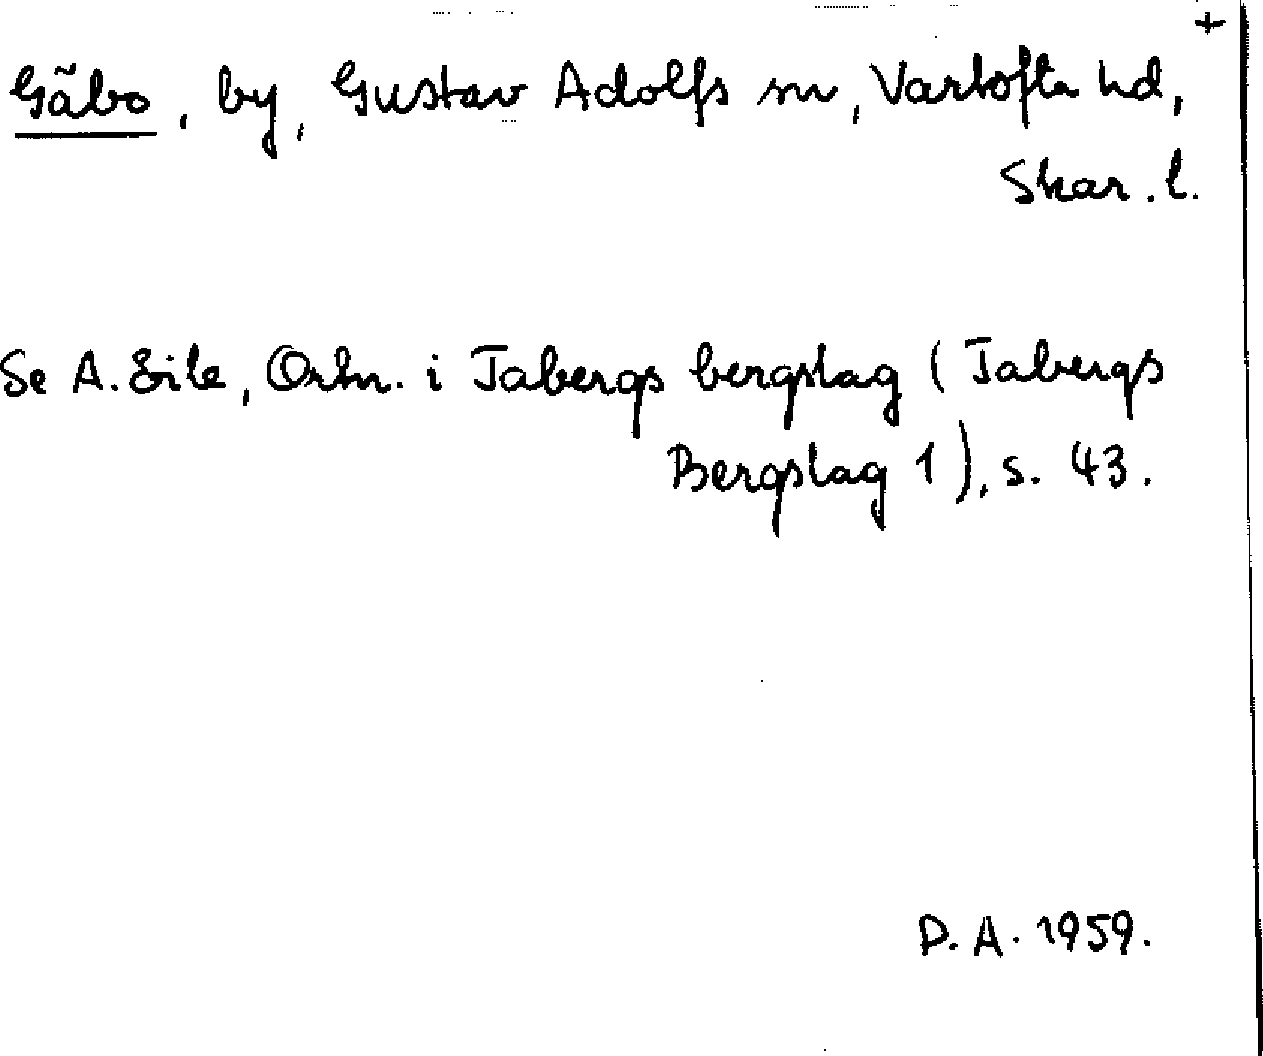 +
Gäbo, by, Gustav Adolfs sn, Vartofta hd,
Skar. l.
Se A. , Ortn. i Tabergs bergslag (Tabergs
Bergslag 1), s. 43.
D. A. 1959.